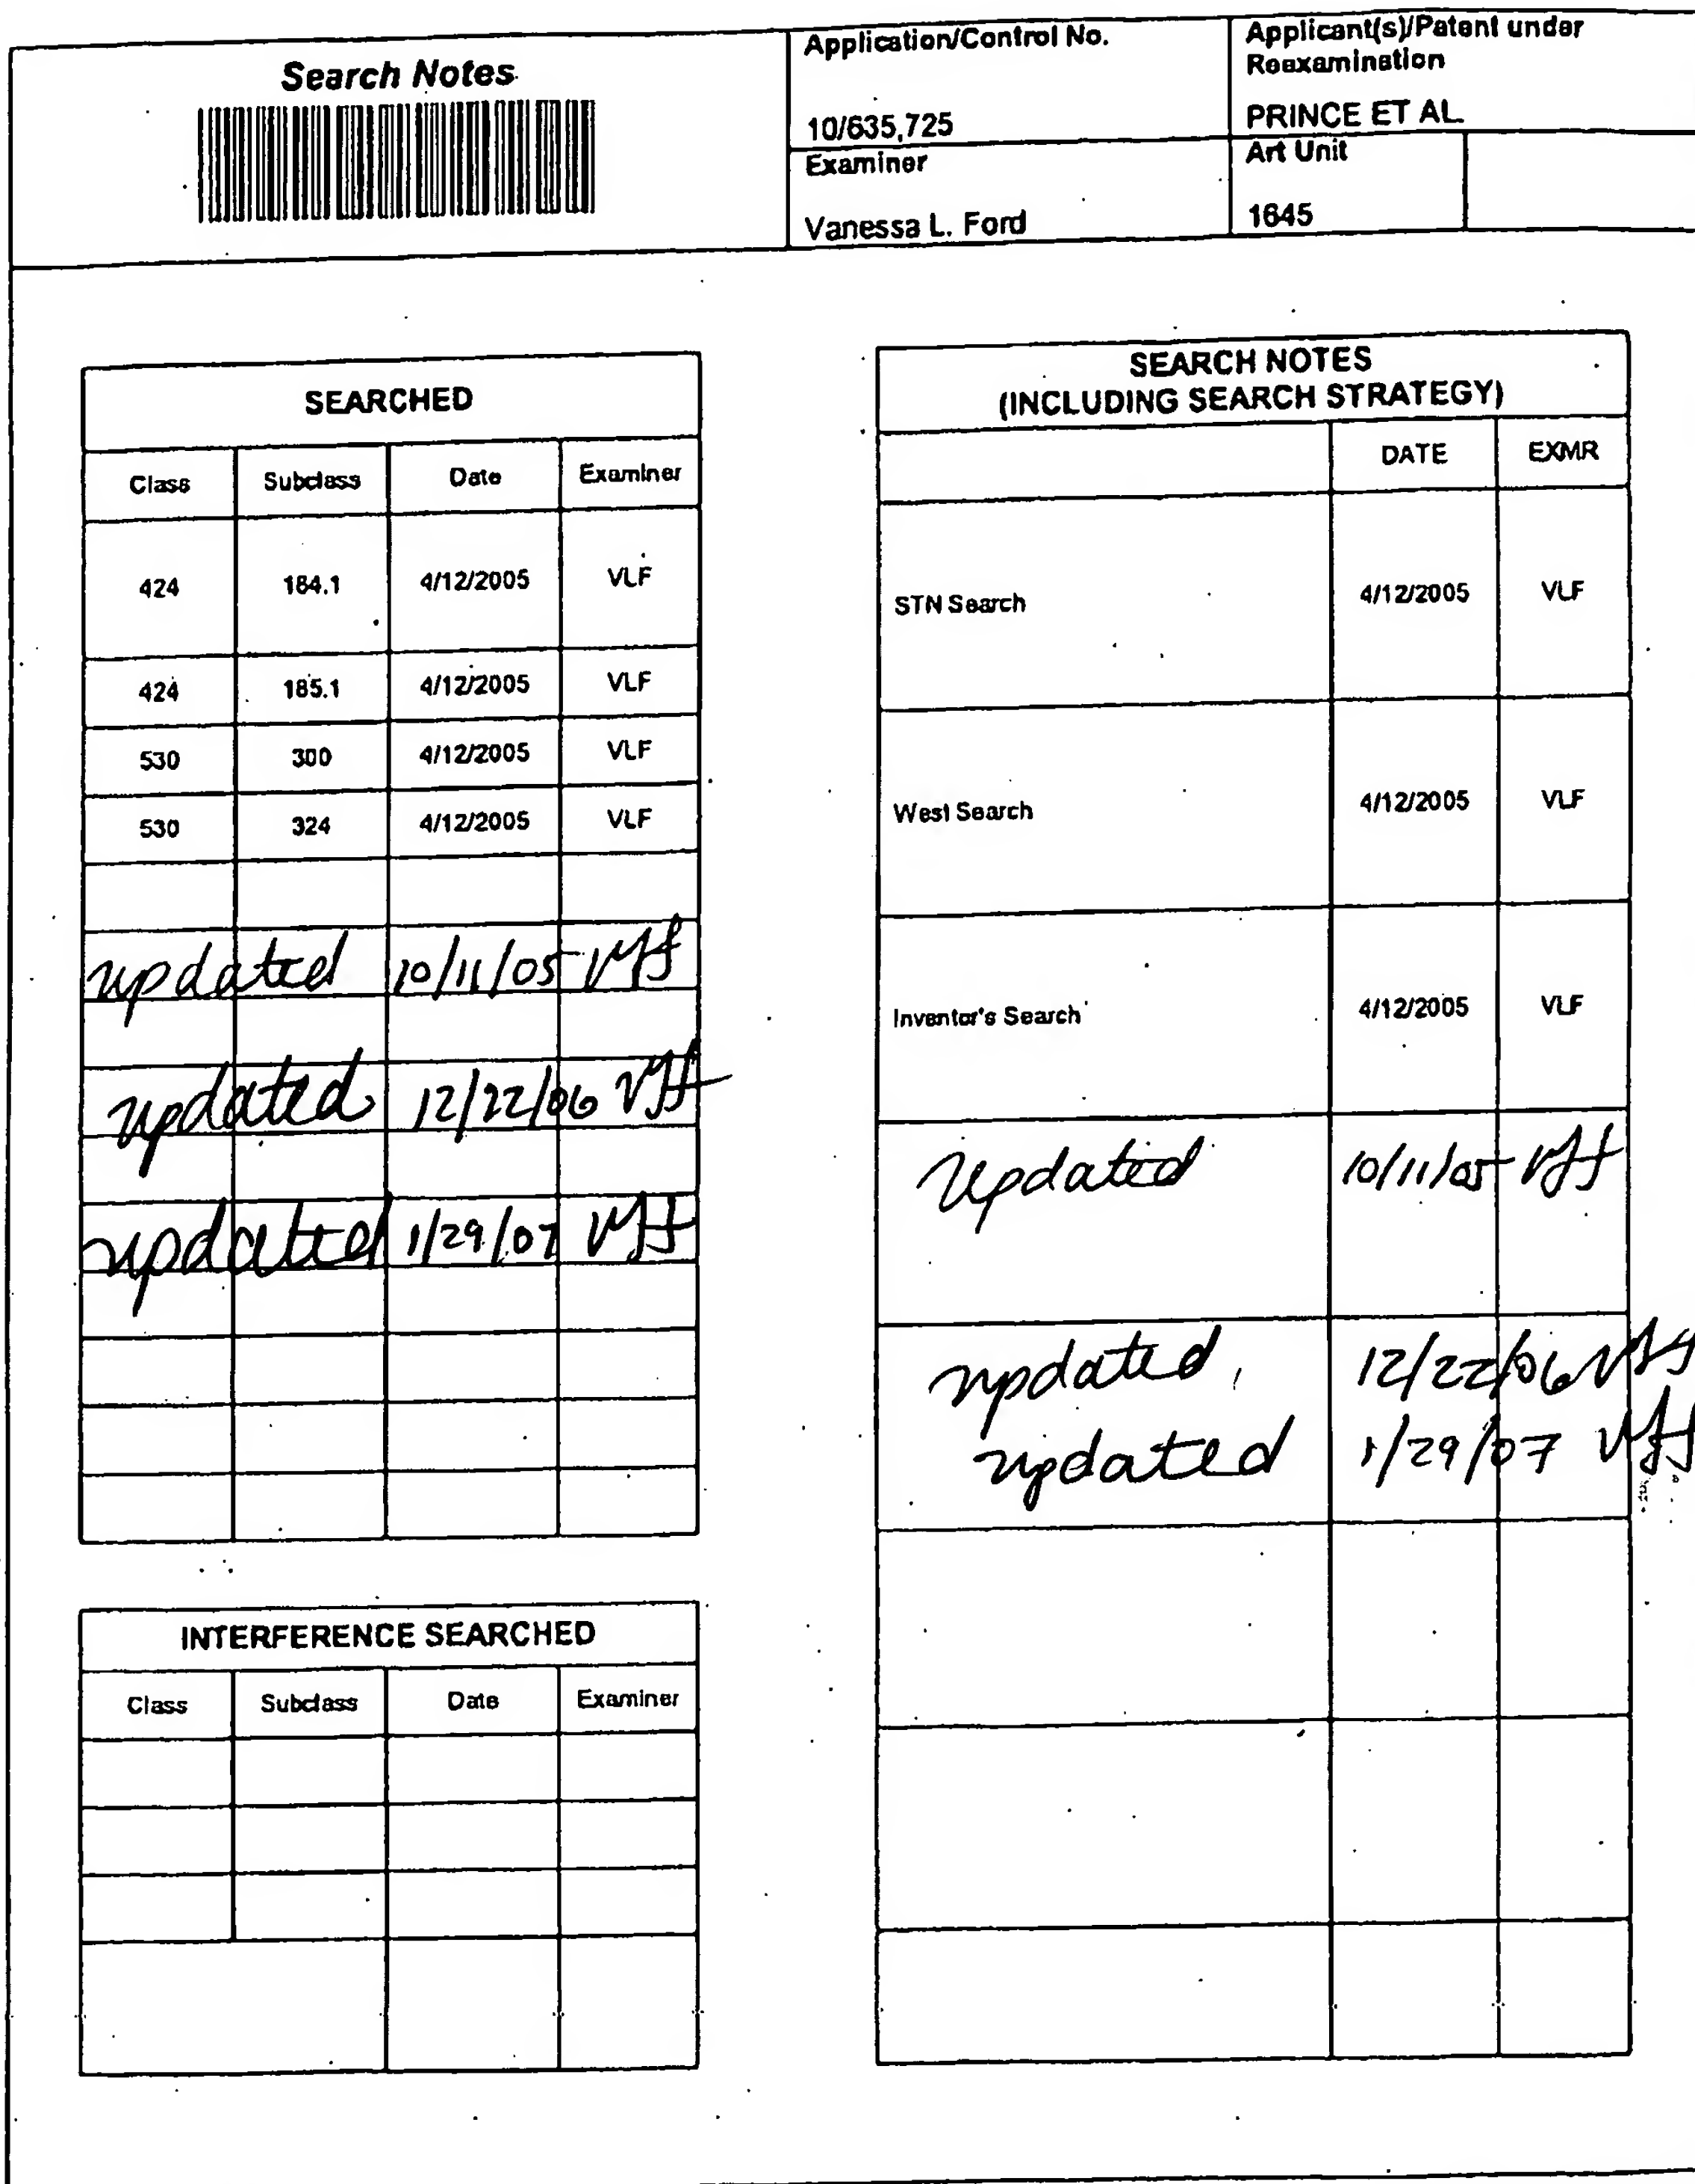 Search Notes
Application/Control No.
10/635,725
Applicant(s)/Patent under
Reexamination
PRINCE ET AL.
Examiner
Vanessa L. Ford
Art Unit
1645
SEARCHED
Class Subclass Date Examiner
424 184.1 4/12/2005 VLF
424 185.1 4/12/2005 VLF
530 300 4/12/2005 VLF
530 324 4/12/2005 VLF
updated 10/11/05 vlf
updated 12/22/06 vlf
updated 1/29/07 vlf
INTERFERENCE SEARCHED
Class Subclass Date Examiner
SEARCH NOTES
(INCLUDING SEARCH STRATEGY)
DATE EXMR
STN Search 4/12/2005 VLF
West Search 4/12/2005 VLF
Inventor's Search 4/12/2005 VLF
Updated 10/11/05 vlf
updated 12/22/06 vlf
updated 1/29/07 vlf